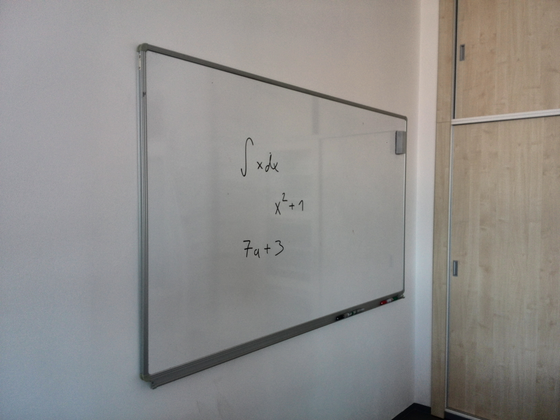 ∫ x dx
x² + 1
7a + 3